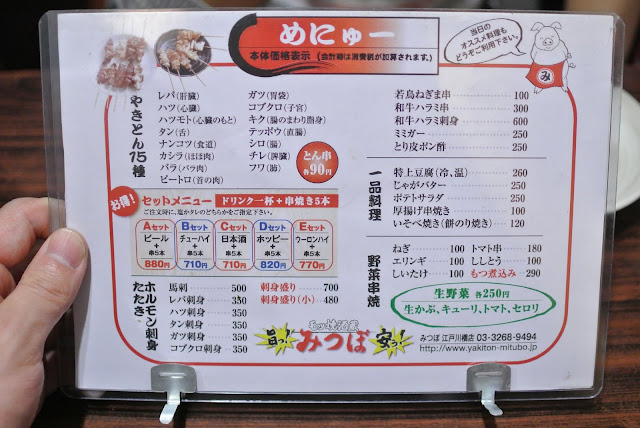 めにゅー
本体価格表示 (会計時は消費税が加算されます。)
当日の
オススメ料理も
どうぞご利用下さい。
み
やきとん15種
レバ(肝臓)
ハツ(心臓)
ハツモト(心臓のもと)
タン(舌)
ナンコツ(食道)
カシラ(ほほ肉)
バラ(バラ肉)
ピートロ(首の肉)
ガツ(胃袋)
コブクロ(子宮)
キク(腸のまわり脂身)
テッポウ(直腸)
シロ(腸)
チレ(脾臓)
フワ(肺)
とん串
各90円
お得!
セットメニュー ドリンク一杯+串焼き5本
ご注文時に、塩かタレのどちらかをご指定下さい。
Aセット
ビール
+
串5本
880円
Bセット
チューハイ
+
串5本
710円
Cセット
日本酒
+
串5本
710円
Dセット
ホッピー
+
串5本
820円
Eセット
ウーロンハイ
+
串5本
770円
ホルモン刺身
たたき
馬刺 500
レバ刺身 350
ハツ刺身 350
タン刺身 350
ガツ刺身 350
コブクロ刺身 350
刺身盛り 700
刺身盛り(小) 480
若鳥ねぎま串 100
和牛ハラミ串 300
和牛ハラミ刺身 600
ミミガー 250
とり皮ポン酢 250
一品料理
特上豆腐(冷、温) 260
じゃがバター 250
ポテトサラダ 250
厚揚げ串焼き 100
いそべ焼き(餅のり焼き) 100
野菜串焼
ねぎ 100
エリンギ 100
しいたけ 100
トマト串 180
ししとう 100
もつ煮込み 290
生野菜 各250円
生かぶ、キューリ、トマト、セロリ
旨っ! みつぼ 安っ!
みつぼ 江戸川橋店 03-3268-9494
http://www.yakiton-mitubo.jp